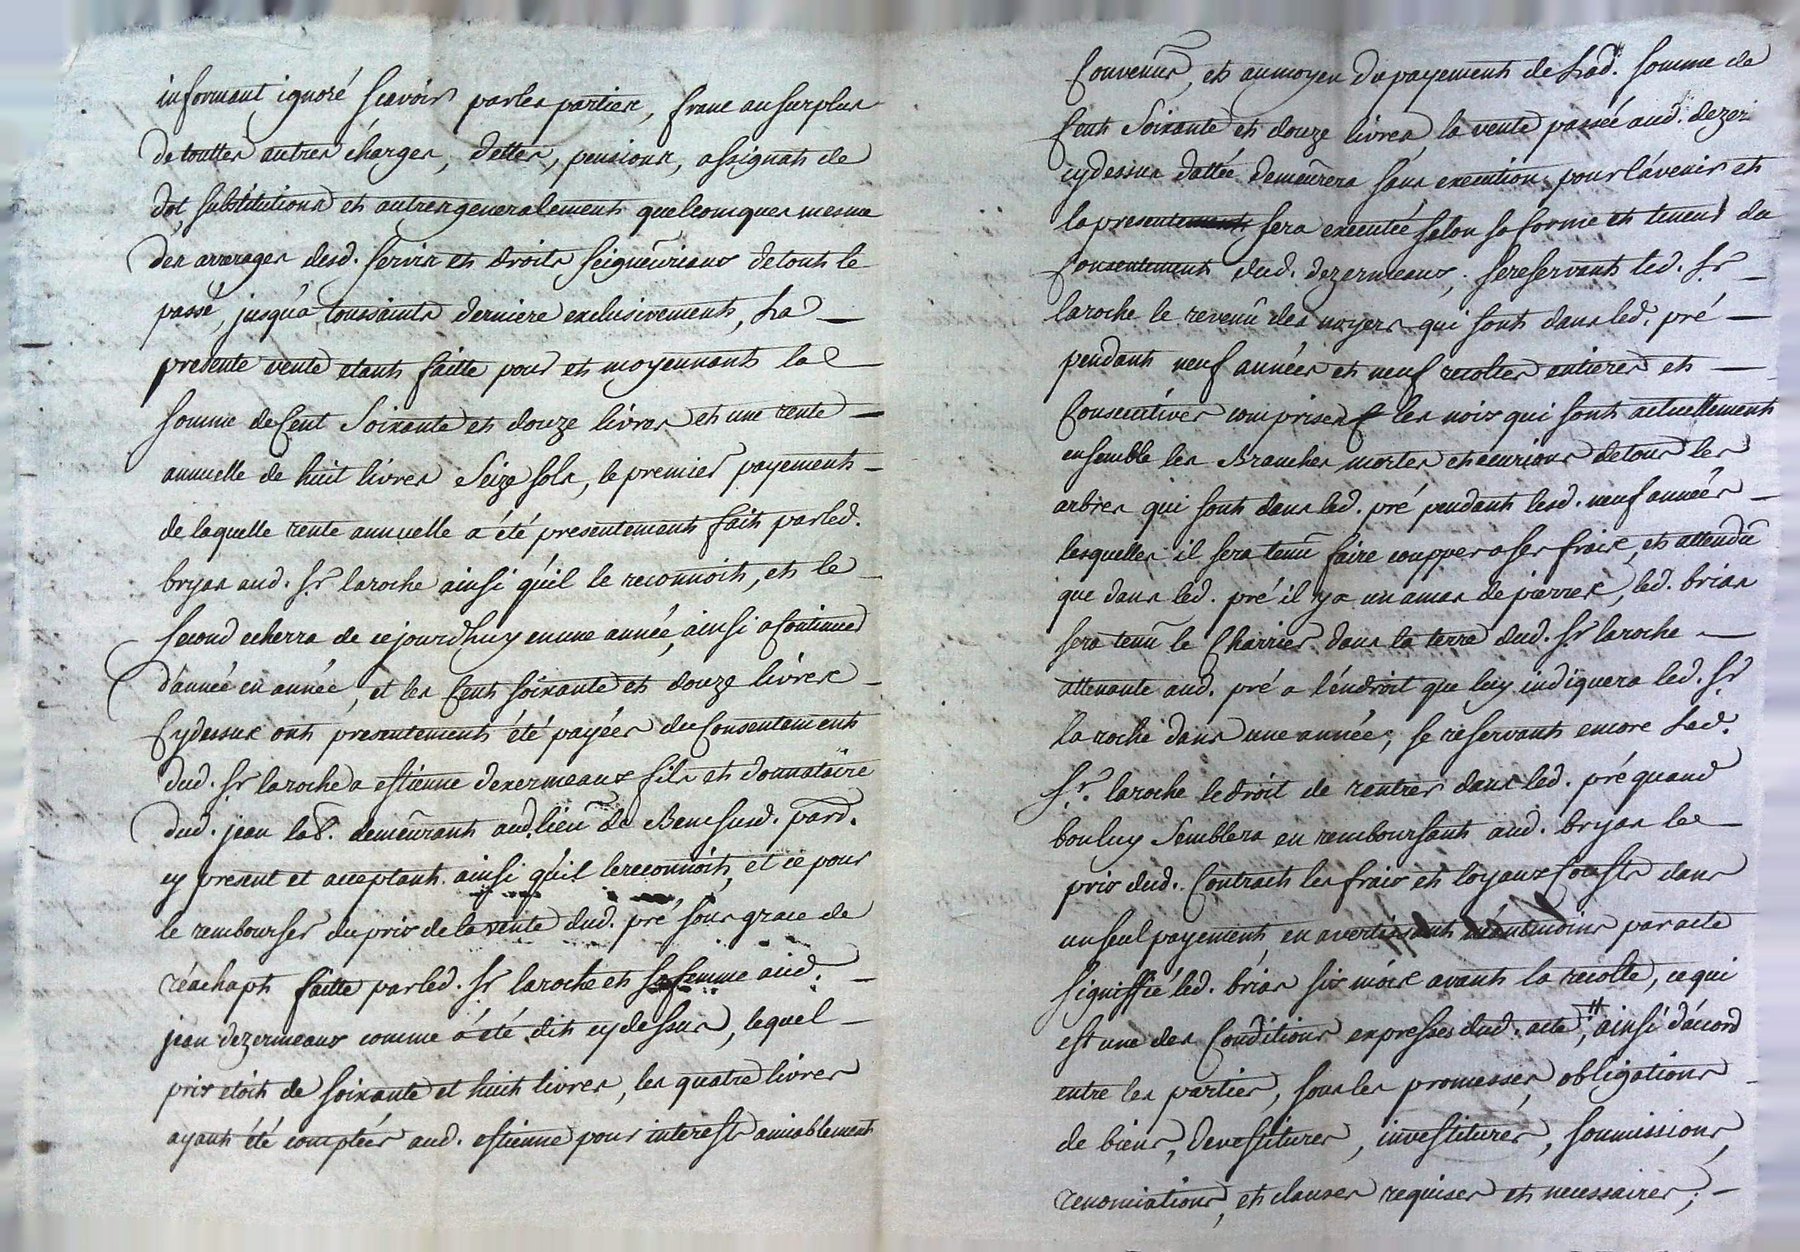 informant ignoré scavoir par les parties, franc au surplus
de touttes autres charges, dettes, pensions, assignats de
dot substitutions et autres generalement quelconques mesme
des arrerages desd. servis et droits seigneuriaux de tout le
passé, jusqu'a toussaints derniere exclusivement, La
presente vente etant faitte pour et moyennant la
somme de Cent Soixante et douze livres et une rente
annuelle de huit livres Seize sols, le premier payement
de laquelle rente annuelle a été presentement fait par led.
bryas aud. Sr laroche ainsi qu'il le reconnoit, et le
second echerra de ce jourdhuy en une année, ainsi a Continuer
d'année en année, et les Cent soixante et douze livres
Cydessus ont presentement été payées du Consentement
dud. Sr laroche a estienne dezermeaux fils et donnataire
dud. jean lab. demeurant aud. lieu de Bene susd. par.
cy present et acceptant ainsi qu'il le reconnoit, et ce pour
le rembourser du prix de la vente dud. pré sous grace de
réachapt faitte par led. Sr laroche et sa femme aud.
jean dezermeaux comme a été dit cydessus, lequel
prix etoit de soixante et huit livres, les quatre livres
ayant été comptées aud. estienne pour interests amiablement
Convenus, et au moyen du payement de Lad. somme de
Cent Soixante et douze livres, la vente passée aud. dezer
cydessus dattée demeurera sans execution pour l'avenir et
la presente sera executée selon sa forme et teneur du
Consentement dud. dezermeaux, se reservant led. Sr
laroche le revenu des noyers qui sont dans led. pré
pendant neuf années et neuf recoltes entieres et
Consecutives comprises les noix qui sont actuellement
ensemble les Branches mortes et de tous les
arbres qui sont dans led. pré pendant lesd. neuf années
lesquelles il sera tenu faire coupper a ses frais, et attendu
que dans led. pré il y a un amas de pierres, led. brias
sera tenu le Charrier dans la terre dud. Sr laroche
attenante aud. pré a l'endroit que luy indiquera led. Sr
la roche dans une année, se reservant encore Led.
Sr. laroche le droit de rentrer dans led. pré quand
bon luy Semblera en remboursant aud. bryas le
prix dud. Contract les frais et loyaux Cousts dans
un seul payement en avertissant néantmoins par acte
signiffié led. brias six mois avant la recolte, ce qui
est une des Conditions expresses dud. acte, ainsi d'accord
entre les parties, sous les promesses, obligations
de biens, devestitures, investitures, soumissions,
renonciations, et clauses requises et necessaires,